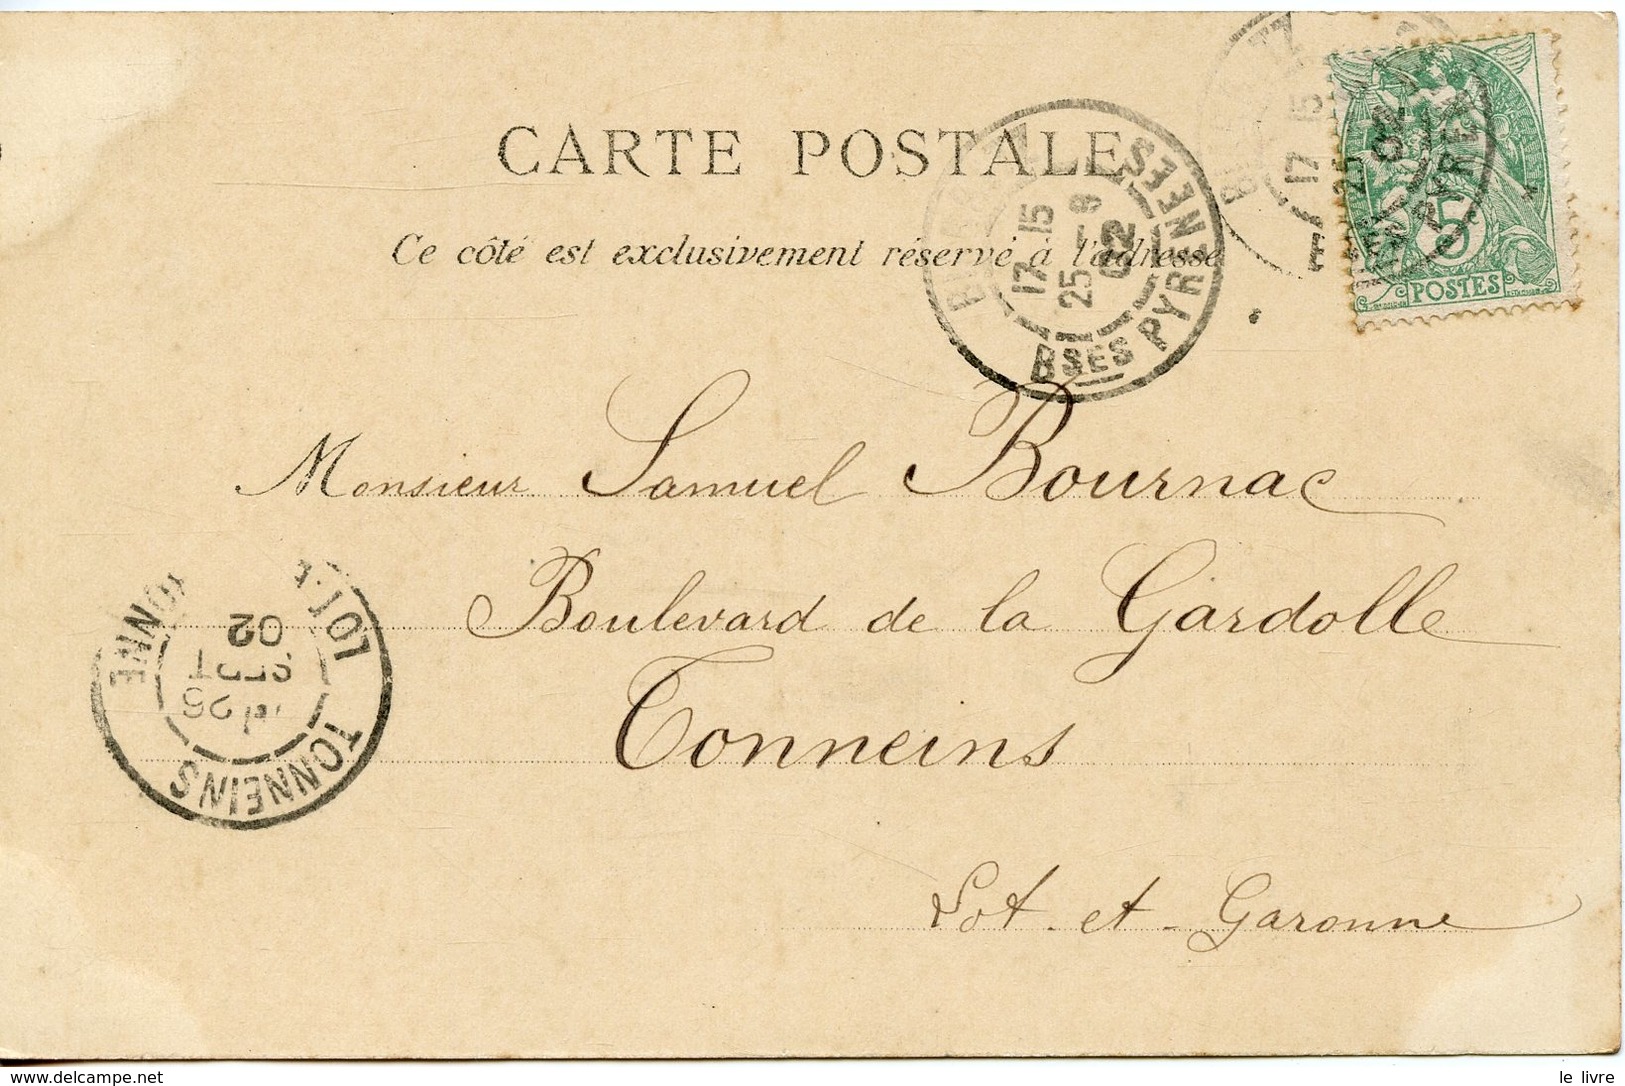 CARTE POSTALE
Ce côté est exclusivement réservé à l'adresse
17 15
25 - 9
02
BSES PYRENEES
17 15
25
PYRE
5
POSTES
Monsieur Samuel Bournac
Boulevard de la Gardolle
Tonneins
Lot-et-Garonne
TONNEINS
26
SEPT
02
LOT-
le livre